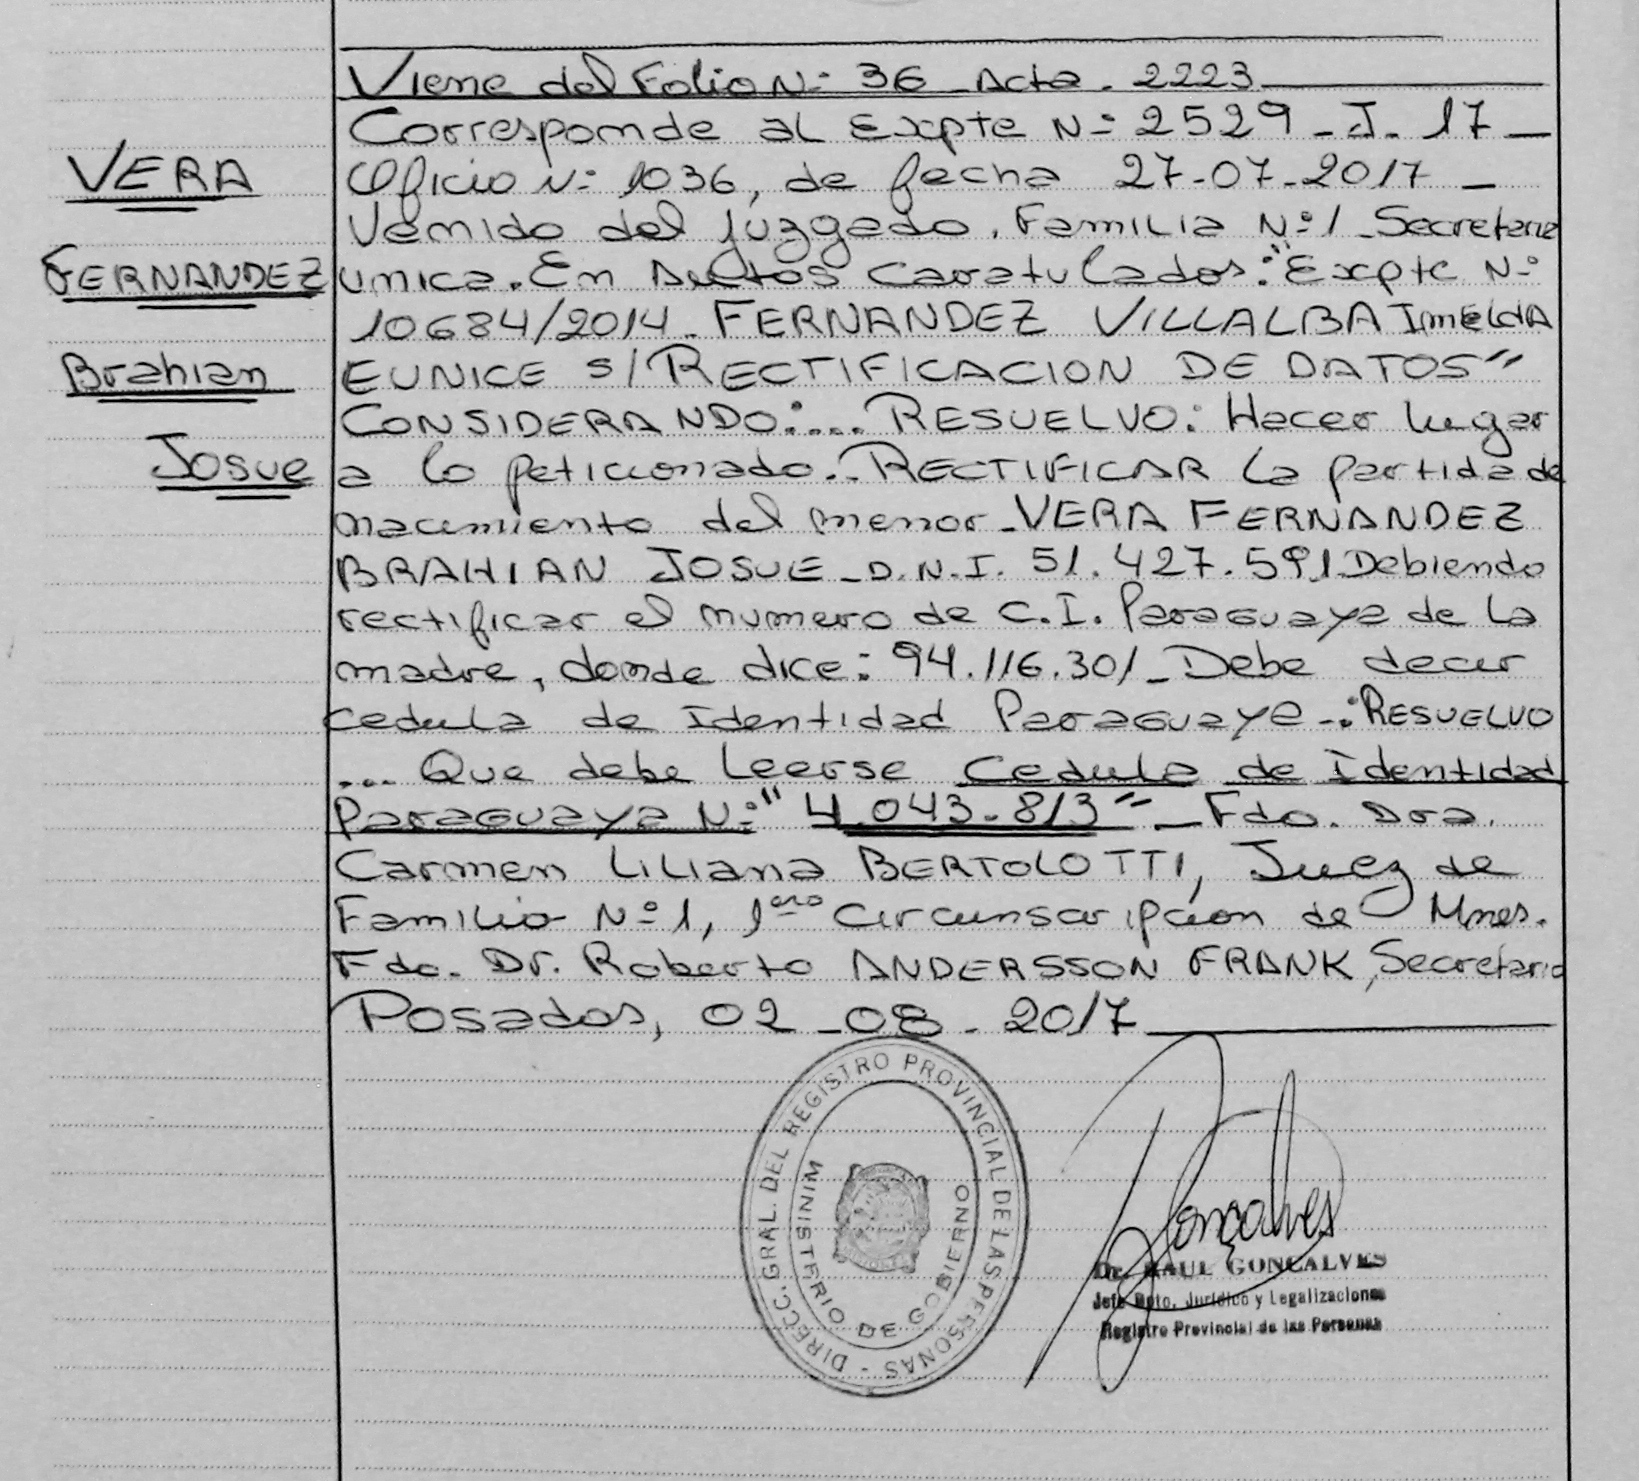 VERA
FERNANDEZ
Brahian
Josue
Viene del Folio N: 36 - Acta - 2223
Corresponde al Expte N: 2529 - J - 17 -
Oficio N: 1036, de fecha 27-07-2017 -
Venido del Juzgado. Familia N:1 - Secretaria
unica. En Autos Caratulados: "Expte N:
10684/2014 - FERNANDEZ VILLALBA ImElDA
EUNICE S/RECTIFICACION DE DATOS"
CONSIDERANDO:... RESUELVO: Hacer lugar
a lo peticionado.. RECTIFICAR la partida de
nacimiento del menor - VERA FERNANDEZ
BRAHIAN JOSUE - D.N.I. 51.427.591 Debiendo
rectificar el numero de C.I. Paraguaya de la
madre, donde dice: 94.116.301 - Debe decir
cedula de Identidad Paraguaya -: RESUELVO
... Que debe leerse Cedula de Identidad
Paraguaya N: "4.043-813" - Fdo. Dra.
Carmen Liliana BERTOLOTTI, Juez de
Familia Nº1, 1era Circunscripcion de Mnes.
Fdo. Dr. Roberto ANDERSSON FRANK, Secretario
Posadas, 02 - 08 - 2017
DIRECC. GRAL. DEL REGISTRO PROVINCIAL DE LAS PERSONAS -
MINISTERIO DE GOBIERNO
Gonçalves
Dr. RAUL GONCALVES
Jefe Dpto. Jurídico y Legalizaciones
Registro Provincial de las Personas